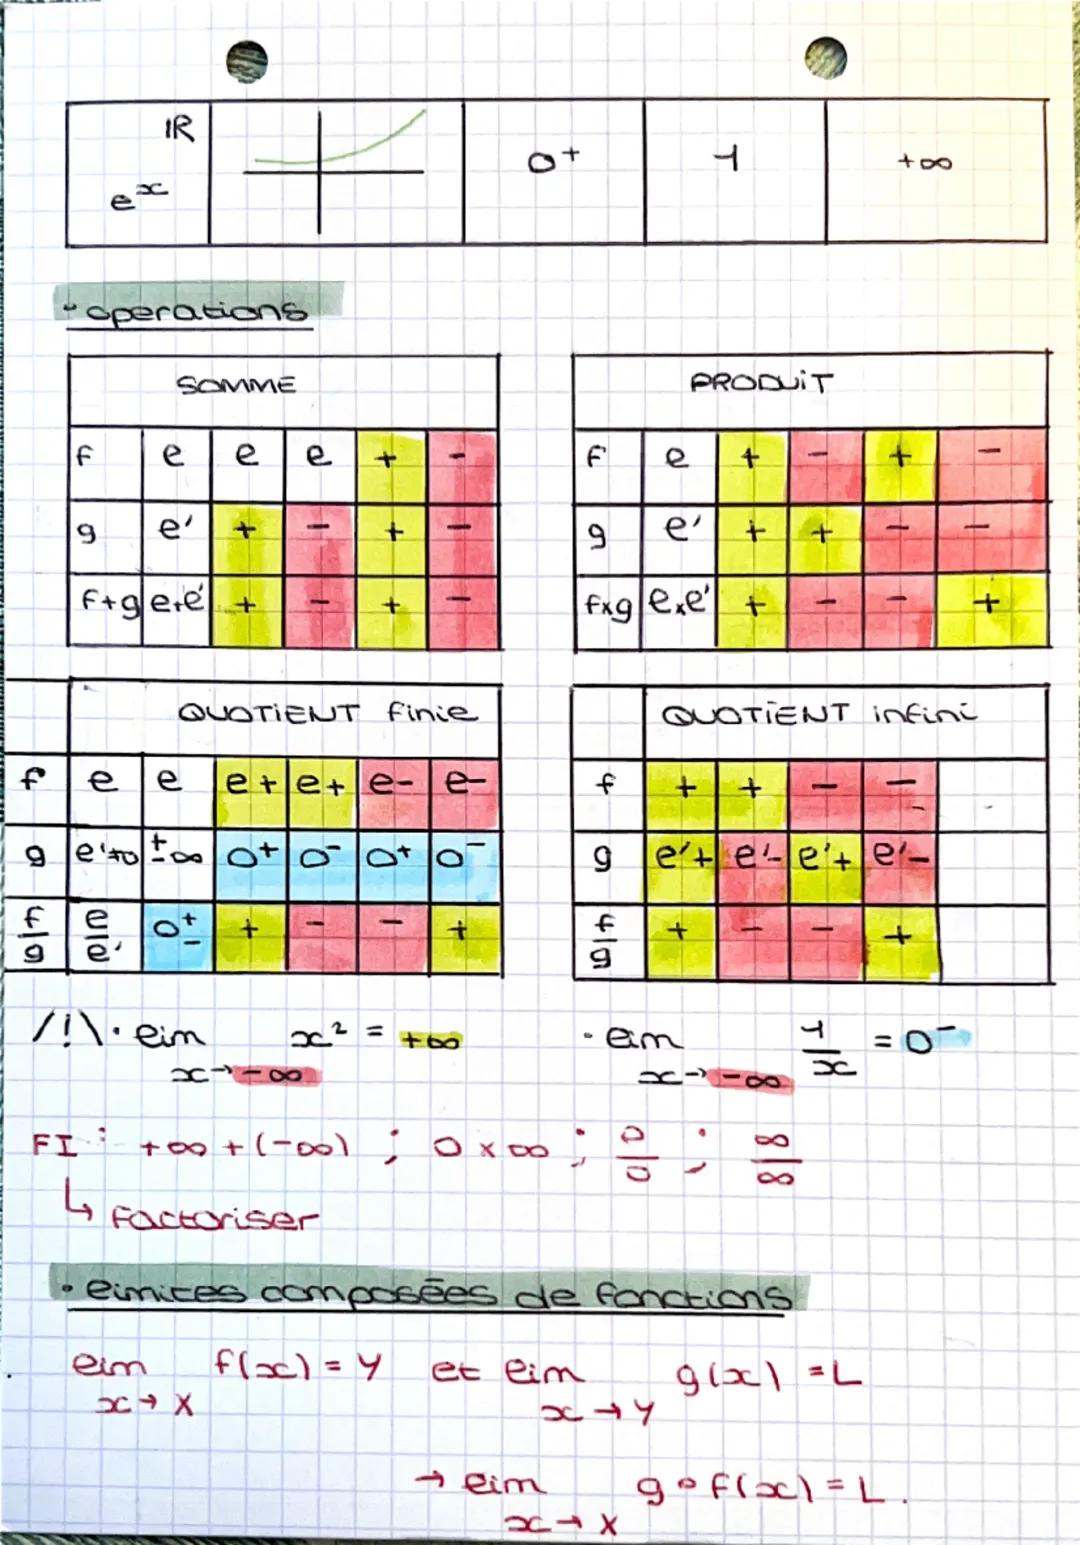 IR
eˣ 0⁺ 1 +∞
• operations
SOMME
f e e e + -
g e' + - + -
f+g e+e' + - + -
PRODUIT
f e + - + -
g e' + + - -
f×g e×e' + - - +
QUOTIENT finie
f e e e+ e+ e- e-
g e'≠0 ±∞ 0⁺ 0⁻ 0⁺ 0⁻
f/g e/e' 0± + - - +
QUOTIENT infini
f + + - -
g e'+ e'- e'+ e'-
f/g + - - +
/!\ • lim x→-∞ x² = +∞ • lim x→-∞ 1/x = 0⁻
FI : +∞ + (-∞) ; 0 × ∞ ; 0/0 ; ∞/∞
↳ factoriser
• limites composées de fonctions
lim x→X f(x) = Y et lim x→Y g(x) = L
→ lim x→X g∘f(x) = L.